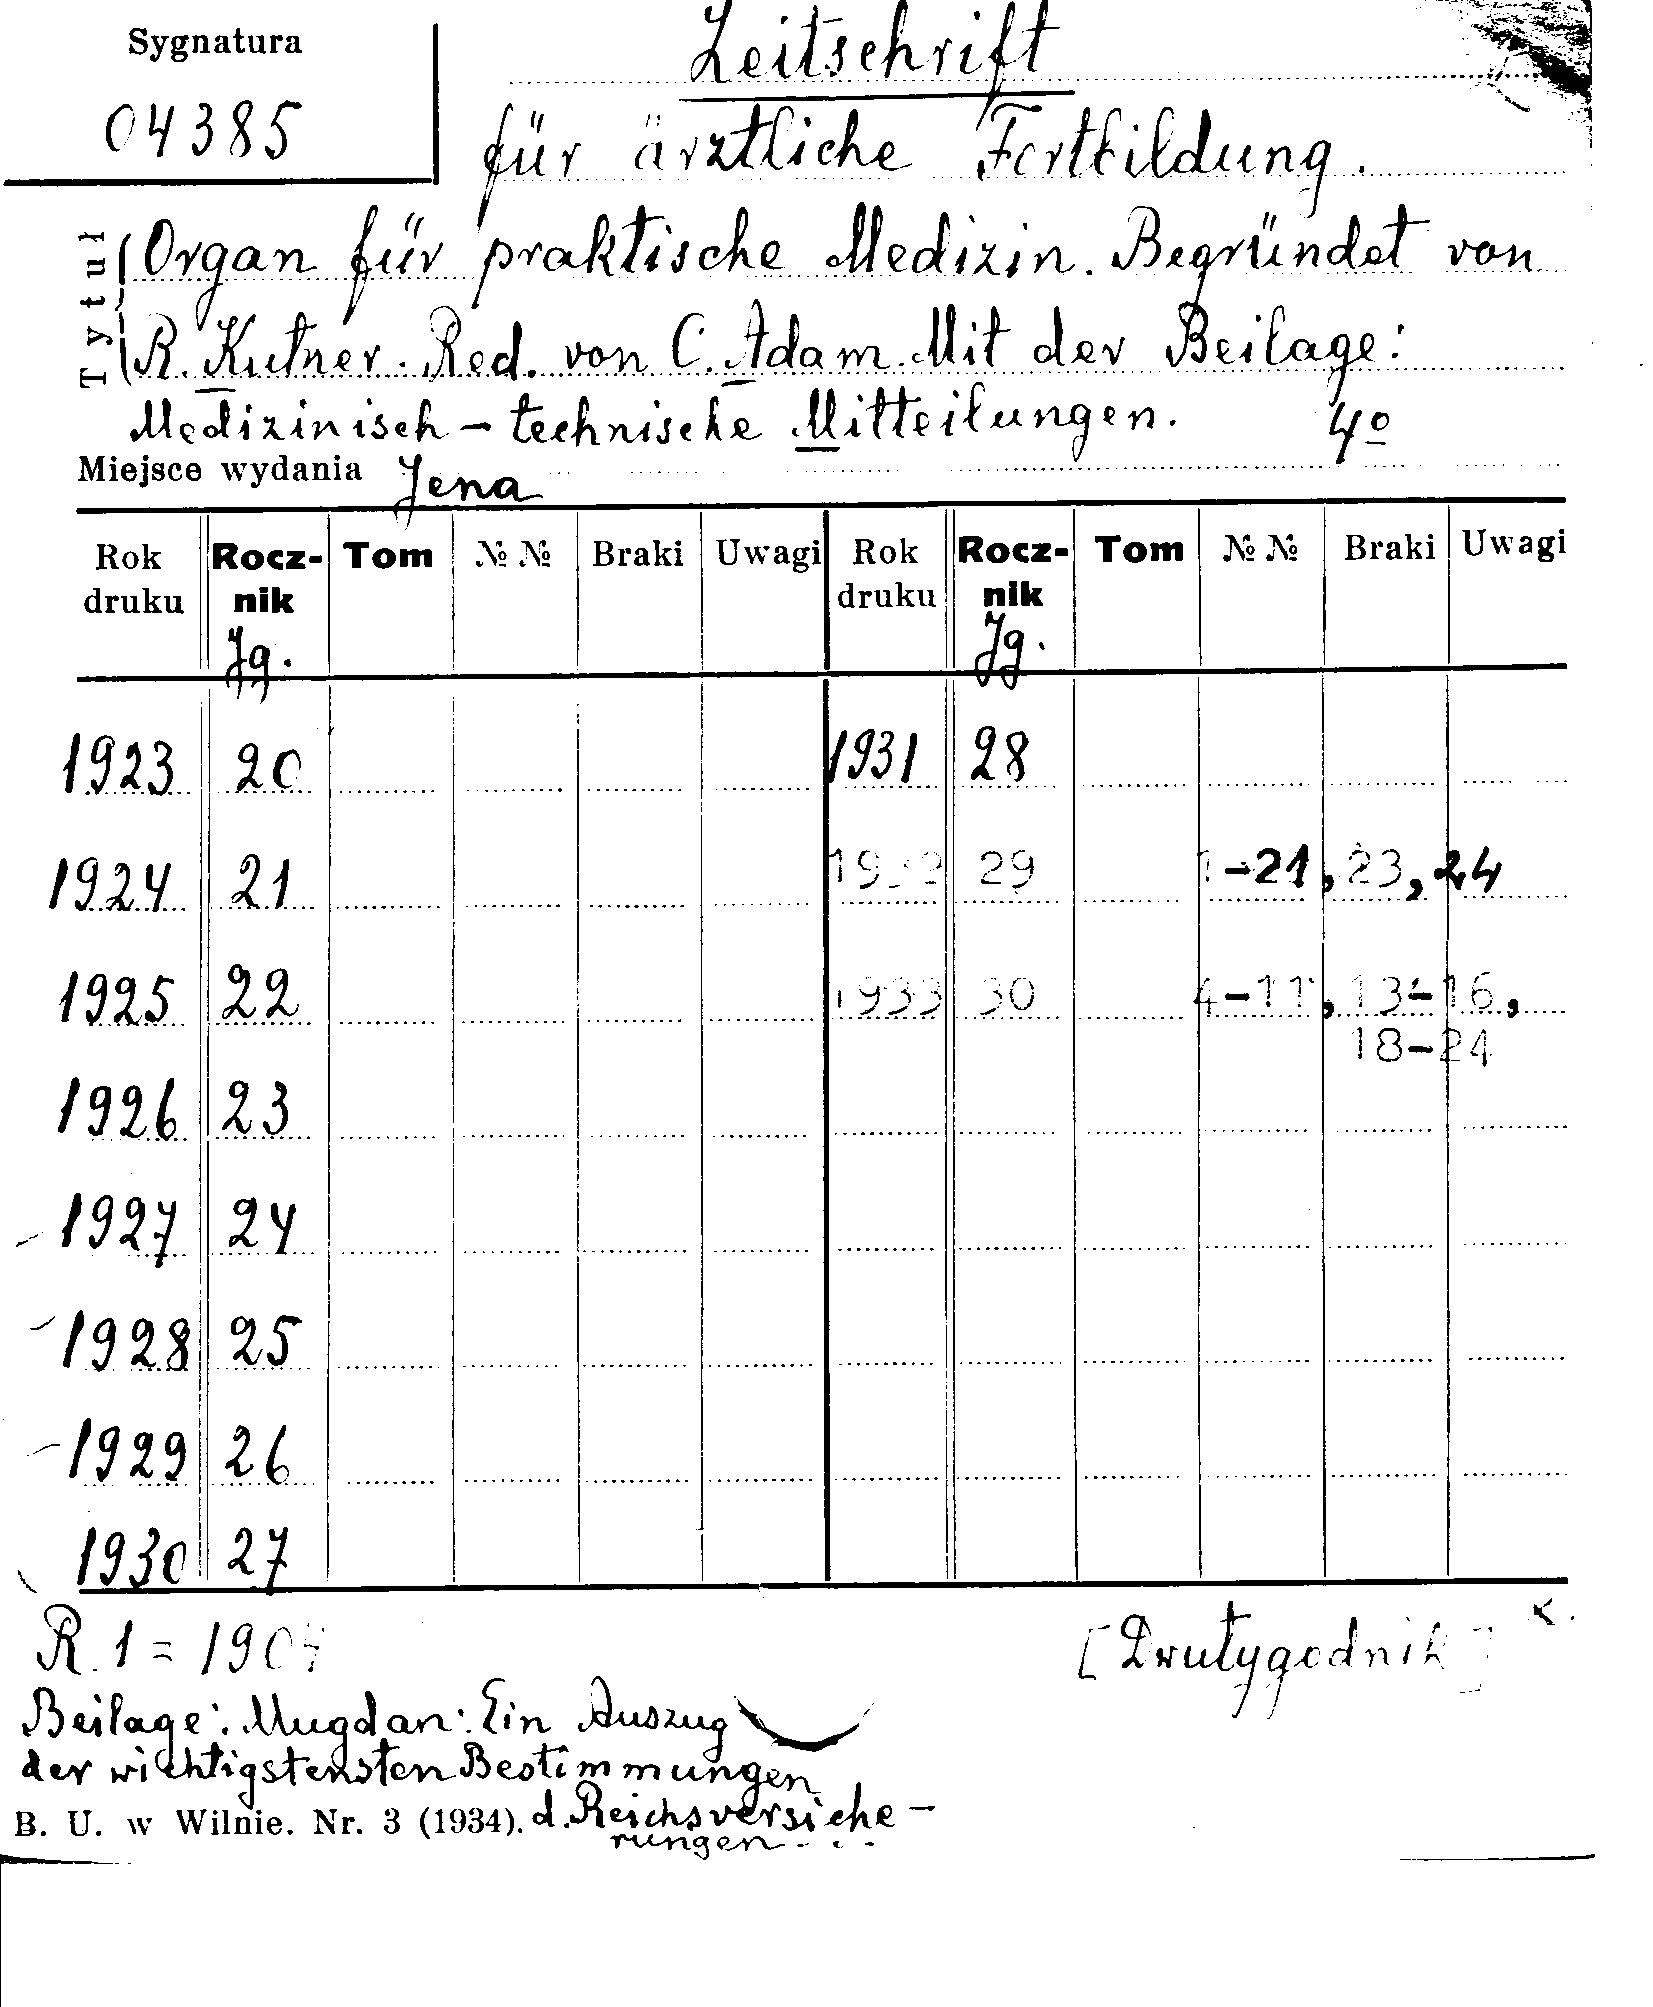 Sygnatura
04385
Zeitschrift
für ärztliche Fortbildung.
Tytuł
Organ für praktische Medizin. Begründet von
R. Kutner. Red. von C. Adam. Mit der Beilage:
Medizinisch-technische Mitteilungen. 4º
Miejsce wydania Jena
Rok druku Rocznik Jg. Tom №№ Braki Uwagi Rok druku Rocznik Jg. Tom №№ Braki Uwagi
1923 20 1931 28
1924 21 1932 29 1-21, 23, 24
1925 22 1933 30 4-11, 13-16,
18-24
1926 23
1927 24
1928 25
1929 26
1930 27
R. 1 = 1904 [Dwutygodnik]
Beilage: Mugdan: Ein Auszug
der wichtigstensten Bestimmungen
B. U. w Wilnie. Nr. 3 (1934). d. Reichsversiche-
rungen...